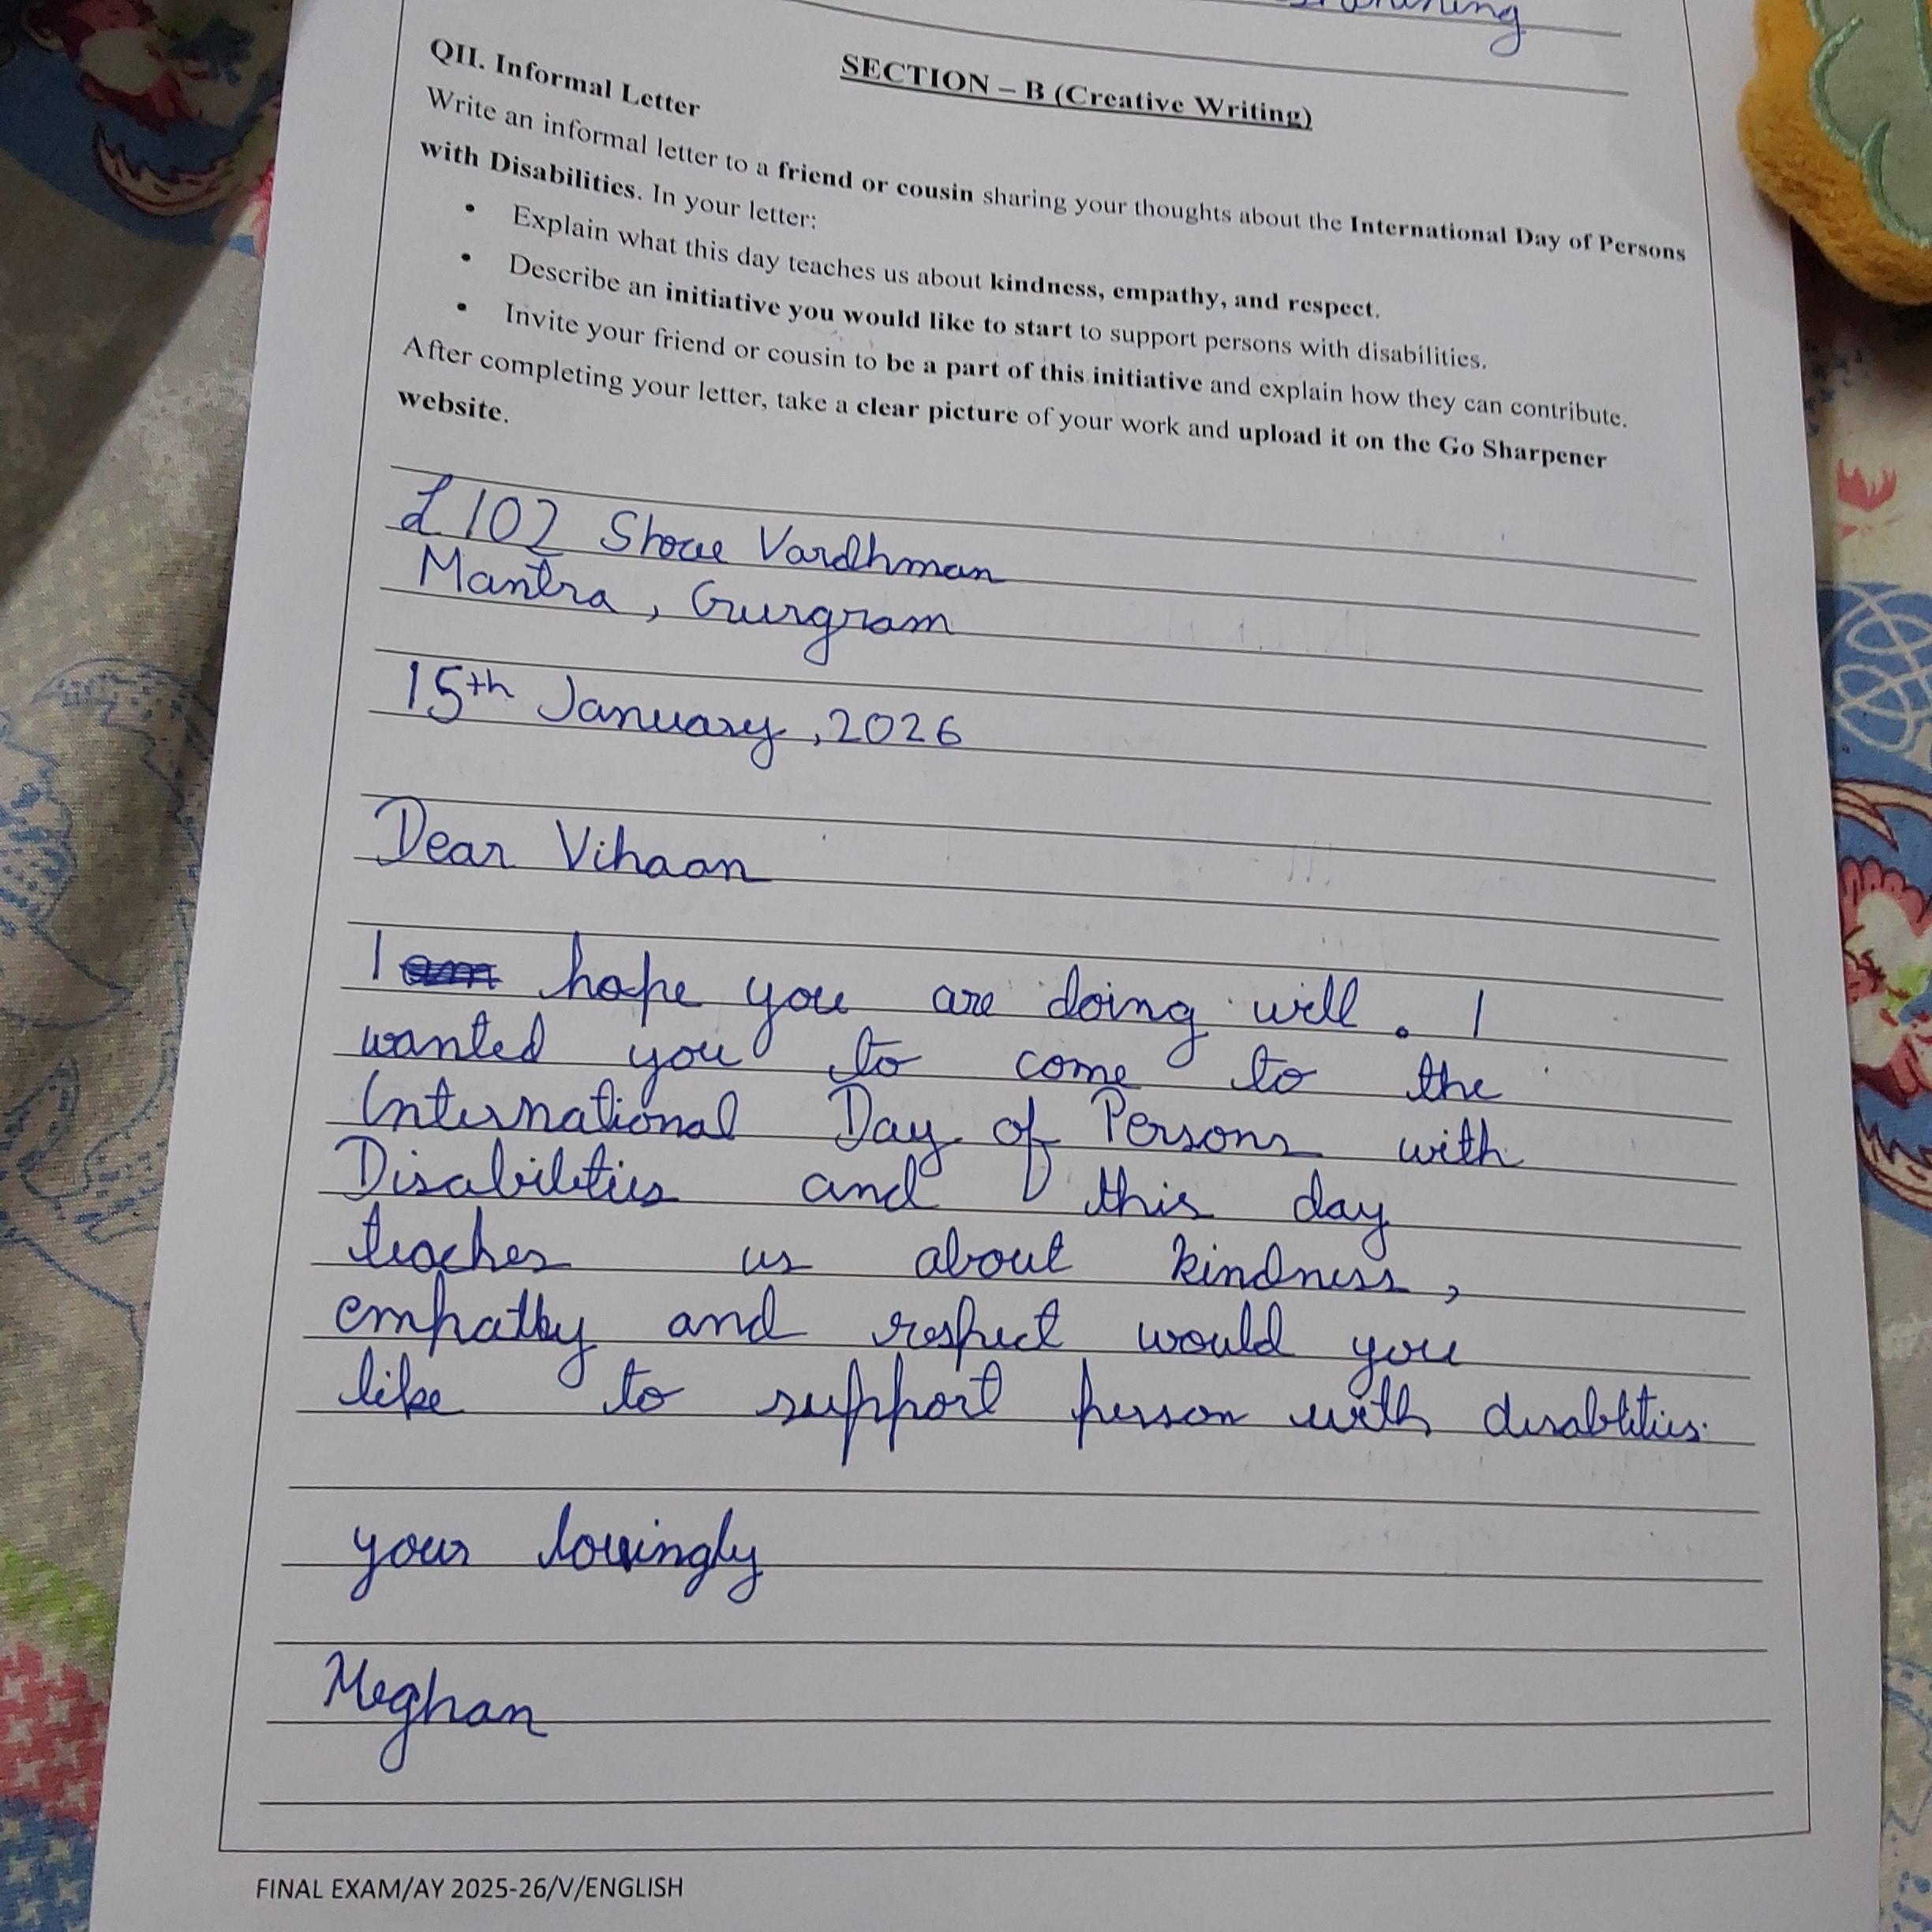 SECTION – B (Creative Writing)
QII. Informal Letter
Write an informal letter to a friend or cousin sharing your thoughts about the International Day of Persons
with Disabilities. In your letter:
• Explain what this day teaches us about kindness, empathy, and respect.
• Describe an initiative you would like to start to support persons with disabilities.
• Invite your friend or cousin to be a part of this initiative and explain how they can contribute.
After completing your letter, take a clear picture of your work and upload it on the Go Sharpener
website.
102 Shree Vardhman
Mantra, Gurgram
15th January, 2026
Dear Vihaan
I hope you are doing well. I
wanted you to come to the
International Day of Persons with
Disabilities and this day
teaches us about kindness,
empathy and respect would you
like to support person with disablities.
your lovingly
Meghan
FINAL EXAM/AY 2025-26/V/ENGLISH